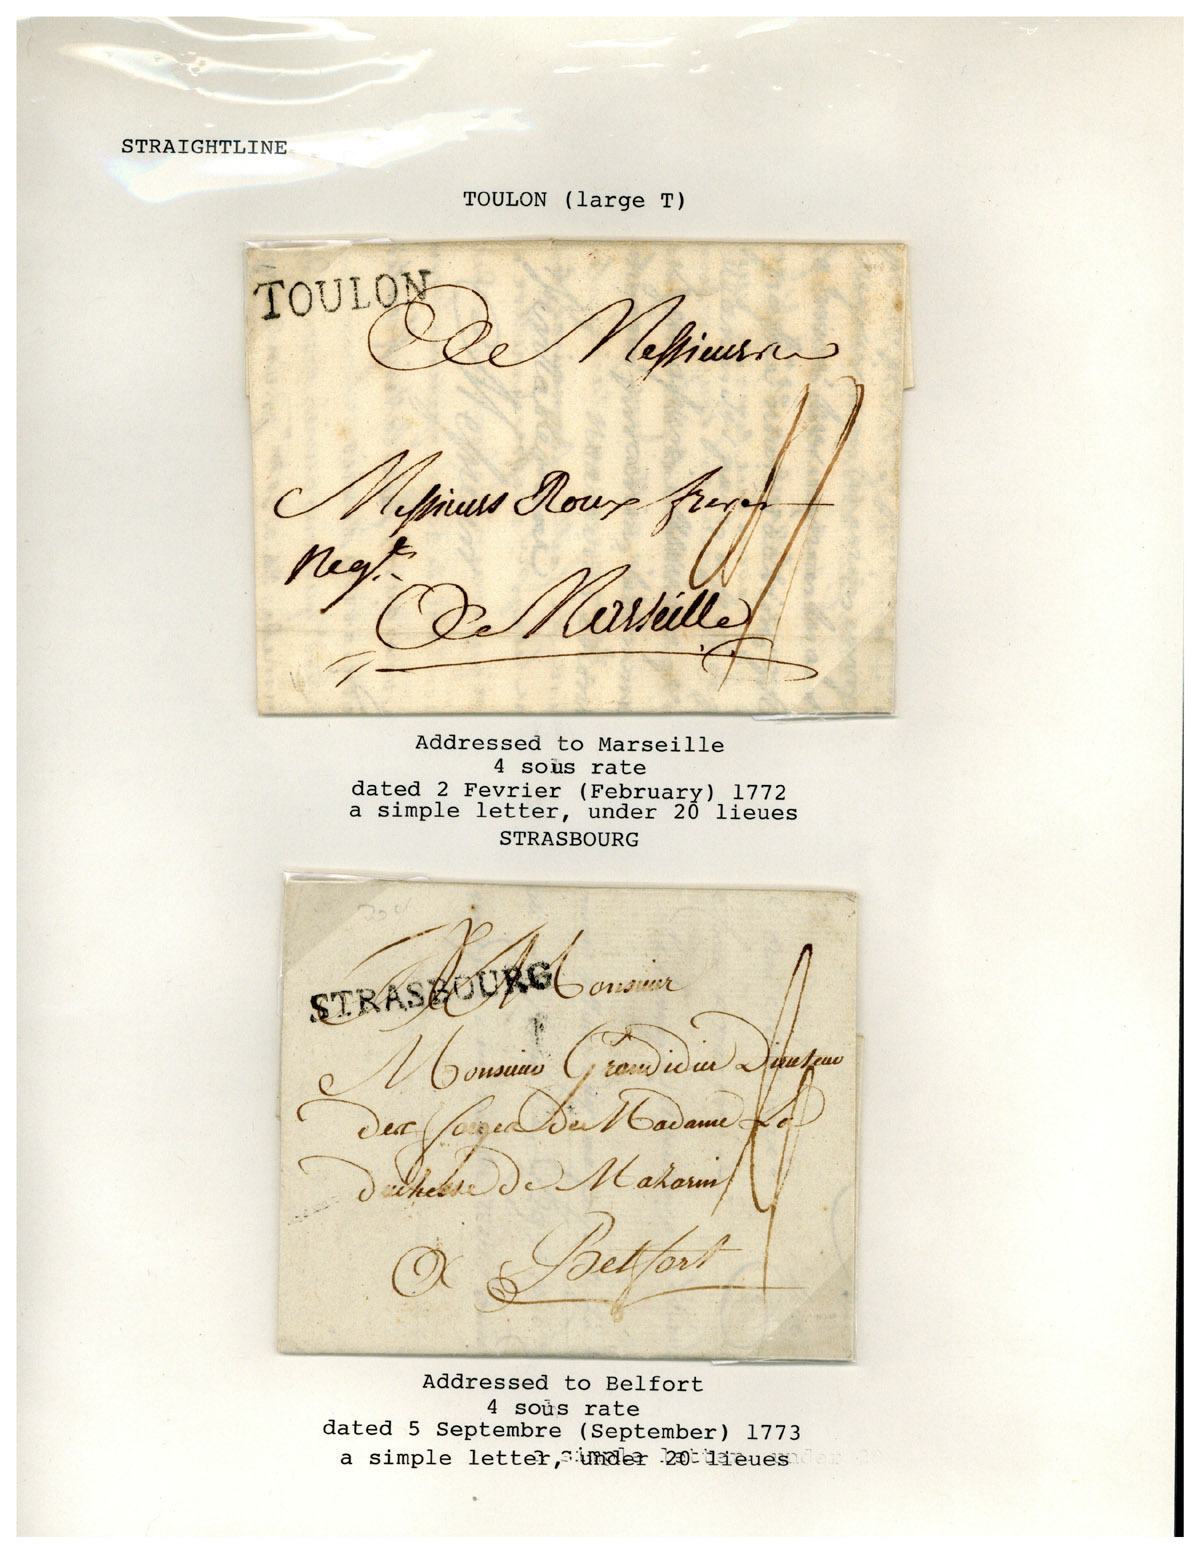 STRAIGHTLINE
TOULON (large T)
TOULON
A Messieurs
Messieurs Roux freres
Negt.
A Marseille
Addressed to Marseille
4 sous rate
dated 2 Fevrier (February) 1772
a simple letter, under 20 lieues
STRASBOURG
STRASBOURG
A Monsieur
Monsieur Grandidier Directeur
des forges de Madame La
duchesse de Mazarin
A Belfort
Addressed to Belfort
4 sous rate
dated 5 Septembre (September) 1773
a simple letter, under 20 lieues